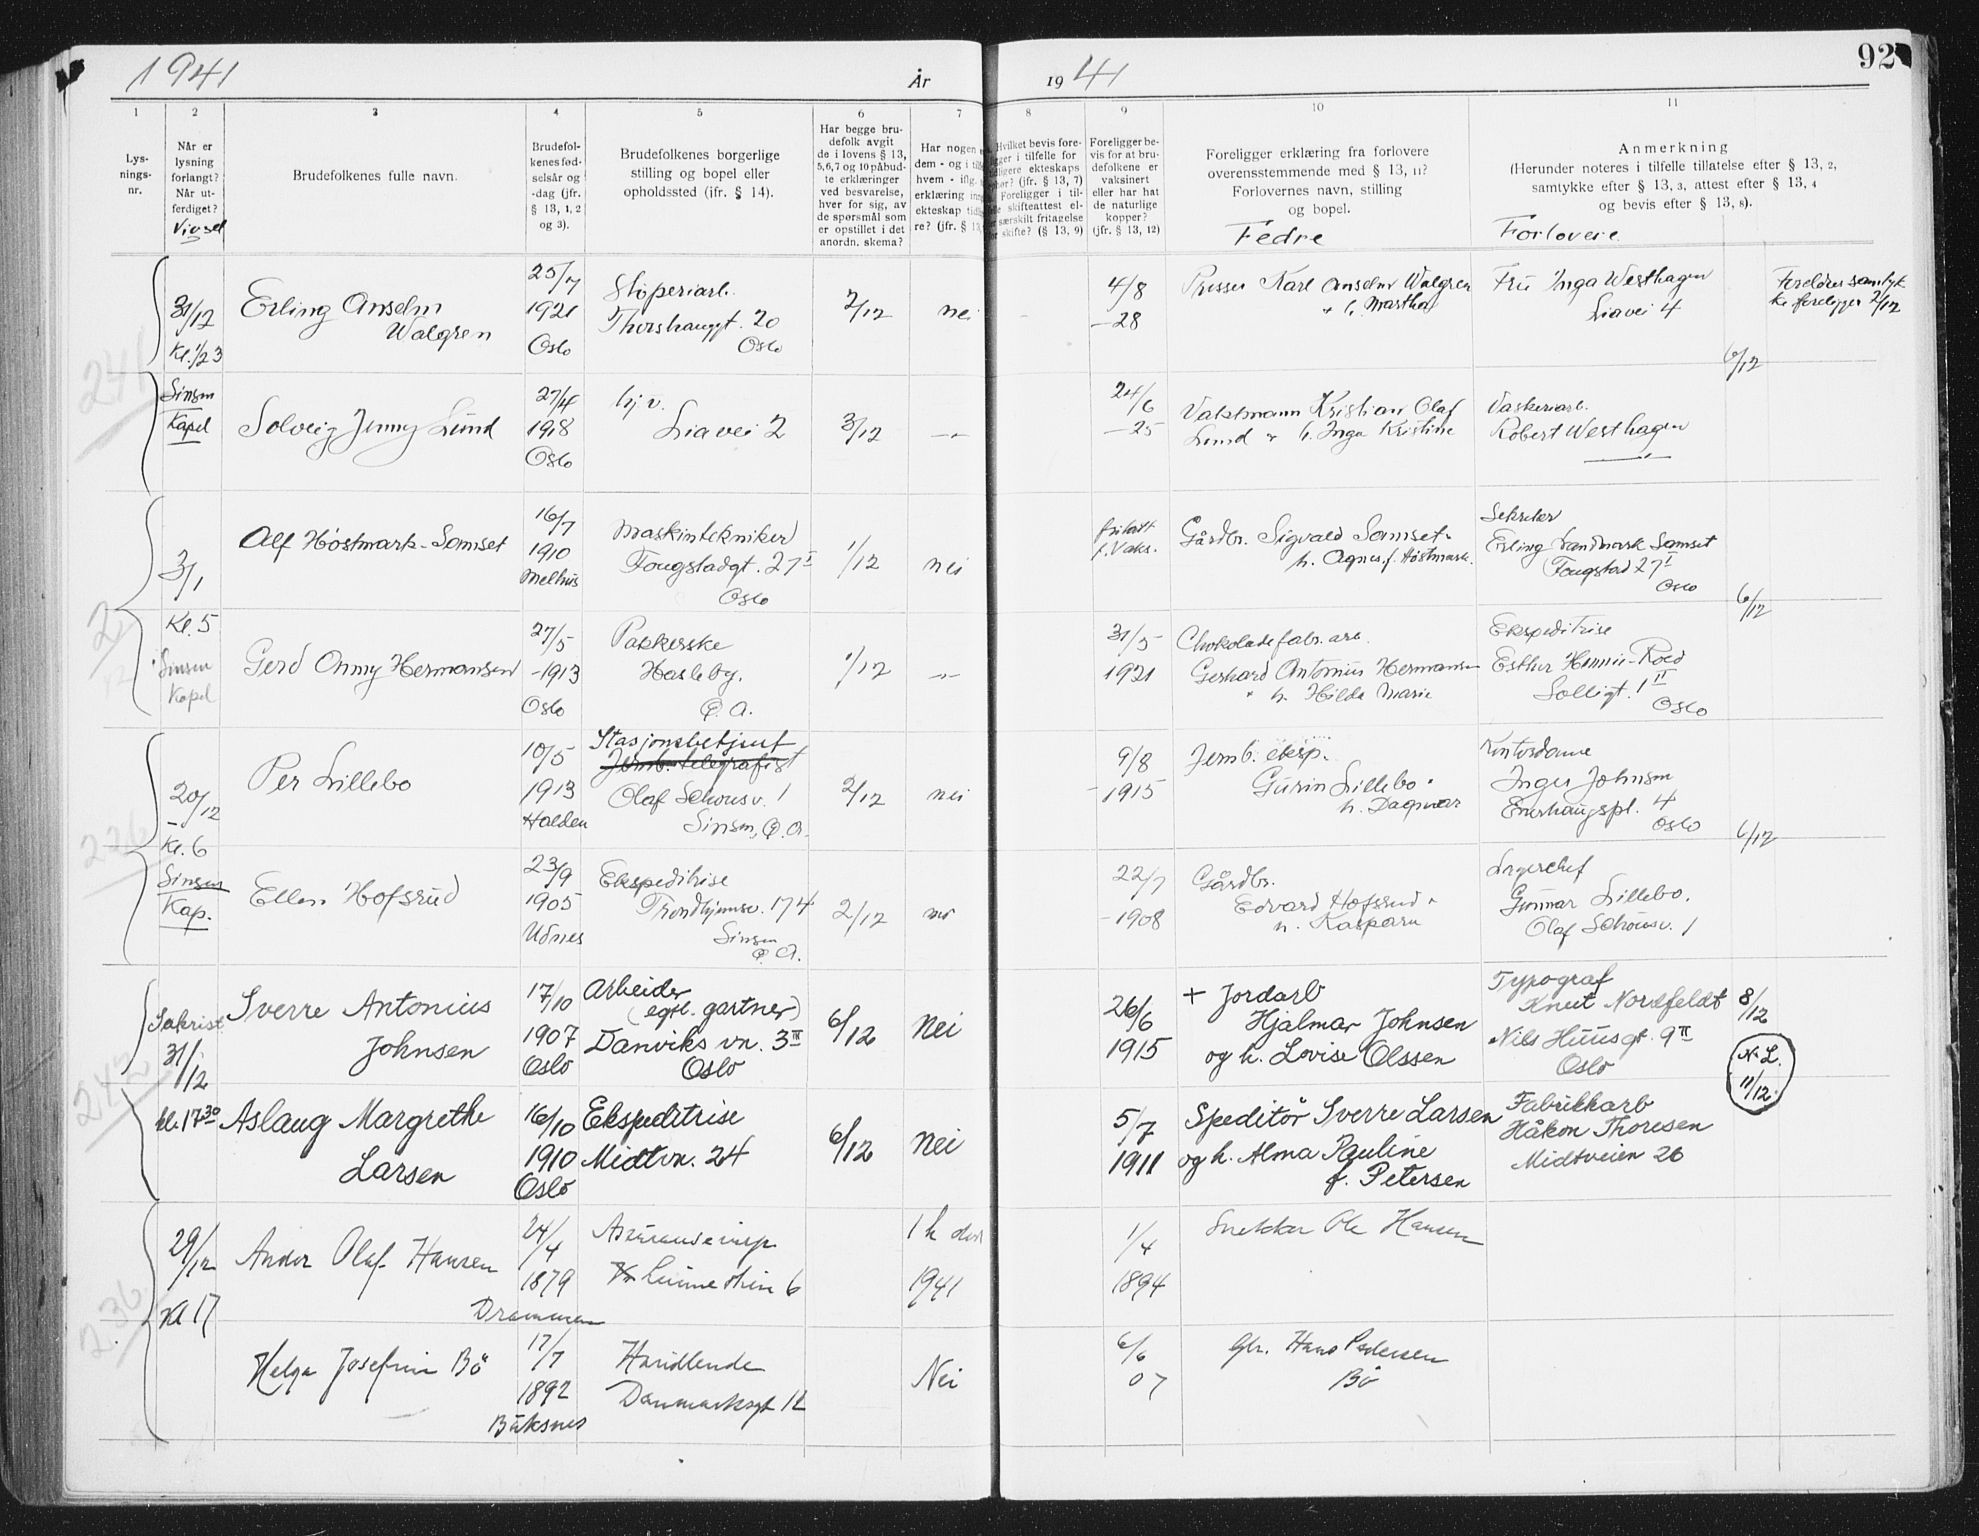 1941
År
1941
92
1
2
3
4
5
6
7
8
9
10
11
Lys-
nings-
nr.
Når er
lysning
forlangt?
Når ut-
ferdiget?
Vigsel
Brudefolkenes fulle navn.
Brudefol-
kenes fød-
selsår og
-dag (jfr.
§ 13, 1, 2
og 3).
Brudefolkenes borgerlige
stilling og bopel eller
opholdssted (ifr. § 14).
Har begge bru-
defolk avgit
de i lovens § 13,
5,6,7 og 10 påbud-
te erklæringer
ved besvarelse,
hver for sig, av
de spørsmål som
er opstillet i det
anordn. skema?
Har nogen
dem - og i
hvem - iflg.
erklæring
ekteskap
re? (jfr. § 13,
Hvilket bevis fore-
ligger i tilfelle for
tidligere ekteskaps
ophør? (jfr. § 13, 7)
Foreligger i til-
felle skifteattest el-
særskilt fritagelse
for skifte? (§ 13, 9)
Foreligger be-
vis for at bru-
defolkene er
vaksinert
eller har hat
de naturlige
kopper?
(jfr. § 13, 12)
Foreligger erklæring fra forlovere
overensstemmende med § 13, 11?
Forlovernes navn, stilling
og bopel.
Fedre
Anmerkning
(Herunder noteres i tilfelle tillatelse efter § 13, 2,
samtykke efter § 13, 3, attest efter § 13, 4
og bevis efter § 13, 8).
Forlovere
241
31/12
Kl. 1/2 3
Erling Anselm
Walgren
25/7
1921
Oslo
Støperiarb.
Thorshauggt. 20
Oslo
2/12
nei
4/8
-28
Presser Karl Anselm Walgren
h. Martha
Fru Inga Westhagen
Liavei 4
Foreldres samtyk
ke foreligger 2/12
6/12
Sinsen
Kapel
Solveig Jenny Lund
27/4
1918
Oslo
hj. v.
Liavei 2
3/12
-"-
24/6
-25
Vaktmann Kristian Olaf
Lund & h. Inga Kristine
Vaskeriarb.
Robert Westhagen
-"-
2
3/1
Kl. 5
Sinsen
Kapel
Alf Høstmark-Samset
16/7
1910
Melhus
Maskintekniker
Fougstadgt. 27 I
Oslo
1/12
nei
fritatt
f. Vaks.
Gårdbr. Sigvald Samset &
h. Agnes f. Høstmark.
Sekretær
Erling Landmark Samset
Fougstad 27 I
Oslo
6/12
Gerd Onny Hermansen
27/5
-1913
Oslo
Pakkerske
Hasleby.
Ø. A.
1/12
-"-
31/5
1921
Chokoladefabr. arb.
Gerhard Antonius Hermansen
& h. Hilda Marie
Ekspeditrise
Esther Hennie-Roed
Solligt. 1 II
Oslo
226
20/12
Kl. 6
Sinsen
Kap.
Per Lillebo
10/5
1913
Halden
Stasjonsbetjent
Jernb. telegrafist
Olaf Schousv. 1
Sinsen, Ø. A.
2/12
nei
9/8
-1915
Jernb. eksp.
Gurin Lillebo &
h. Dagmar
Kontordame
Inger Johnsen
Enerhaugspl. 4
Oslo
6/12
Ellen Hofsrud
23/9
1905
Udnes
Ekspeditrise
Trondhjemsv. 174
Sinsen
Ø. A.
2/12
nei
22/7
-1908
Gårdbr.
Edvard Hofsrud &
h. Kaspara
Lagerchef
Gunnar Lillebo.
Olaf Schousv. 1
242
Sakrist.
31/12
kl. 17 30
Sverre Antonius
Johnsen
17/10
1907
Oslo
Arbeider
(egtl. gartner)
Danviks vn. 3 III
Oslo
6/12
Nei
26/6
1915
+ Jordarb
Hjalmar Johnsen
og h. Lovise Olssen
Typograf
Knut Nordfeldt
Nils Huusgt. 9 II
Oslo
8/12
N. L.
11/12.
Aslaug Margrethe
Larsen
16/10
1910
Oslo
Ekspeditrise
Midtvn. 24
6/12
Nei
5/7
1911
Speditør Sverre Larsen
og h. Alma Pauline
f. Petersen
Fabrikkarb
Håkon Thoresen
Midtveien 26
236
29/12
Kl 17
Andor Olaf Hansen
24/4
1879
Drammen
Assuranseinsp
6
1 h død
1941
1/4
1894
Snekker Ole Hansen
Helga Josefine Bø
17/7
1892
Buksnes
Handlende
Danmarksgt 12
Nei
6/6
07
Gbr. Hans Pedersen
Bø